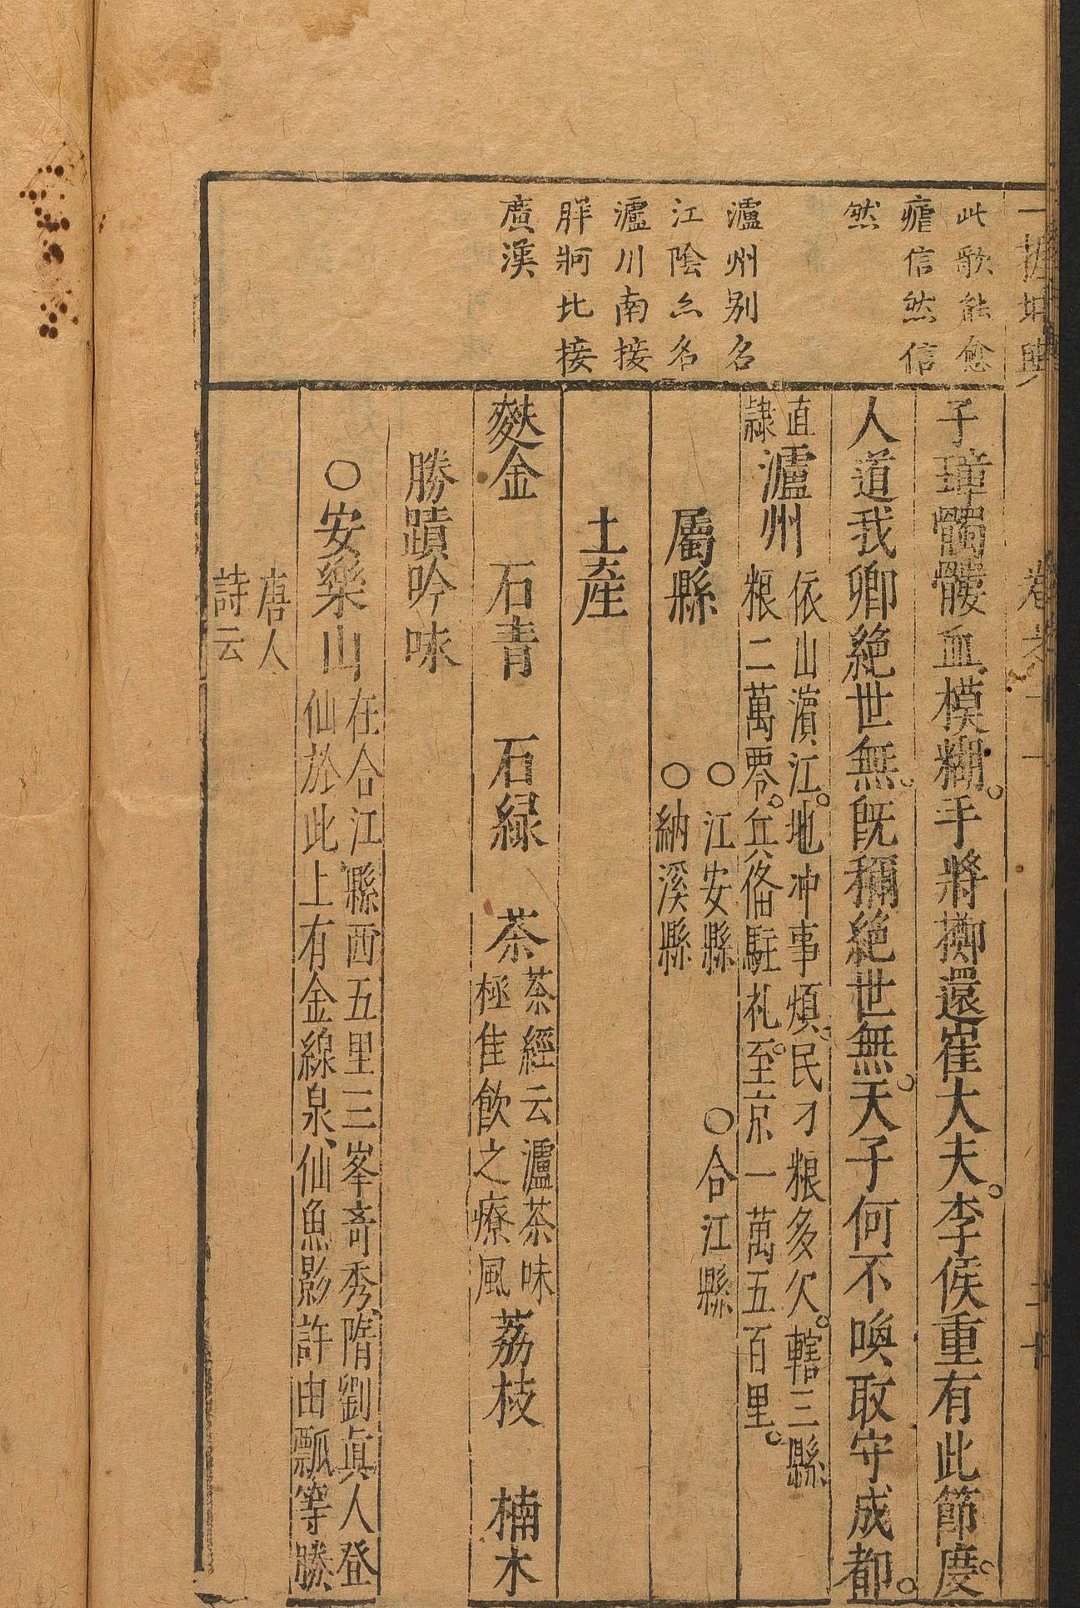 此歌能愈
瘧信然信
然
瀘州别名
江陰亦名
瀘川南接
牂牁比接
廣漢
子璋髑髏血模糊。手將擲還崔大夫。李侯重有此節度。
人道我卿絶世無。既稱絶世無。天子何不喚取守成都。
直隷瀘州
依山濵江。地冲事煩。民刁粮多欠。轄三縣
粮二萬零。兵俻駐札。至京一萬五百里。
屬縣
○江安縣 ○合江縣
○納溪縣
土産
麩金 石青 石緑 茶
茶經云瀘茶味
極佳飲之療風
荔枝 楠木
勝蹟吟咏
○安樂山
在合江縣西五里三峯竒秀、隋劉真人登
仙於此上有金線泉、仙魚影許由瓢等勝
唐人
詩云